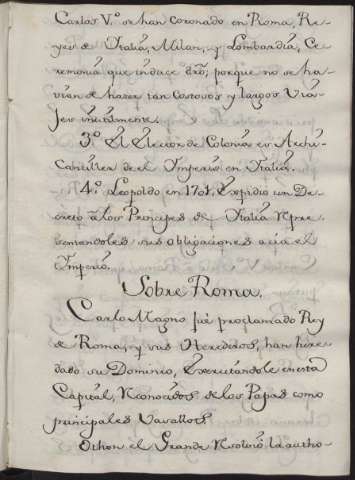 Carlos V.º se han coronado en Roma, Re-
yes de Italia, Milan, y Lombardia, Ce-
remonia que induce dro; porque no se ha-
vian de hazer tan Costosos y largos Via-
jes inutilmente.
3.º El Elector de Colonia es Archi-
Canciller de el Imperio en Italia.
4.º Leopoldo en 1701. Expidio un De-
creto â los Principes de Italia Repre-
sentandoles sus obligaciones acia el
Imperio.
Sobre Roma.
Carlo Magno fué proclamado Rey
de Roma, y sus Herederos, han here-
dado su Dominio, Executandole en esta
Capital, Reconocidos de los Papas como
principales Vasallos.
Othon el Grande Resolvió la autho-